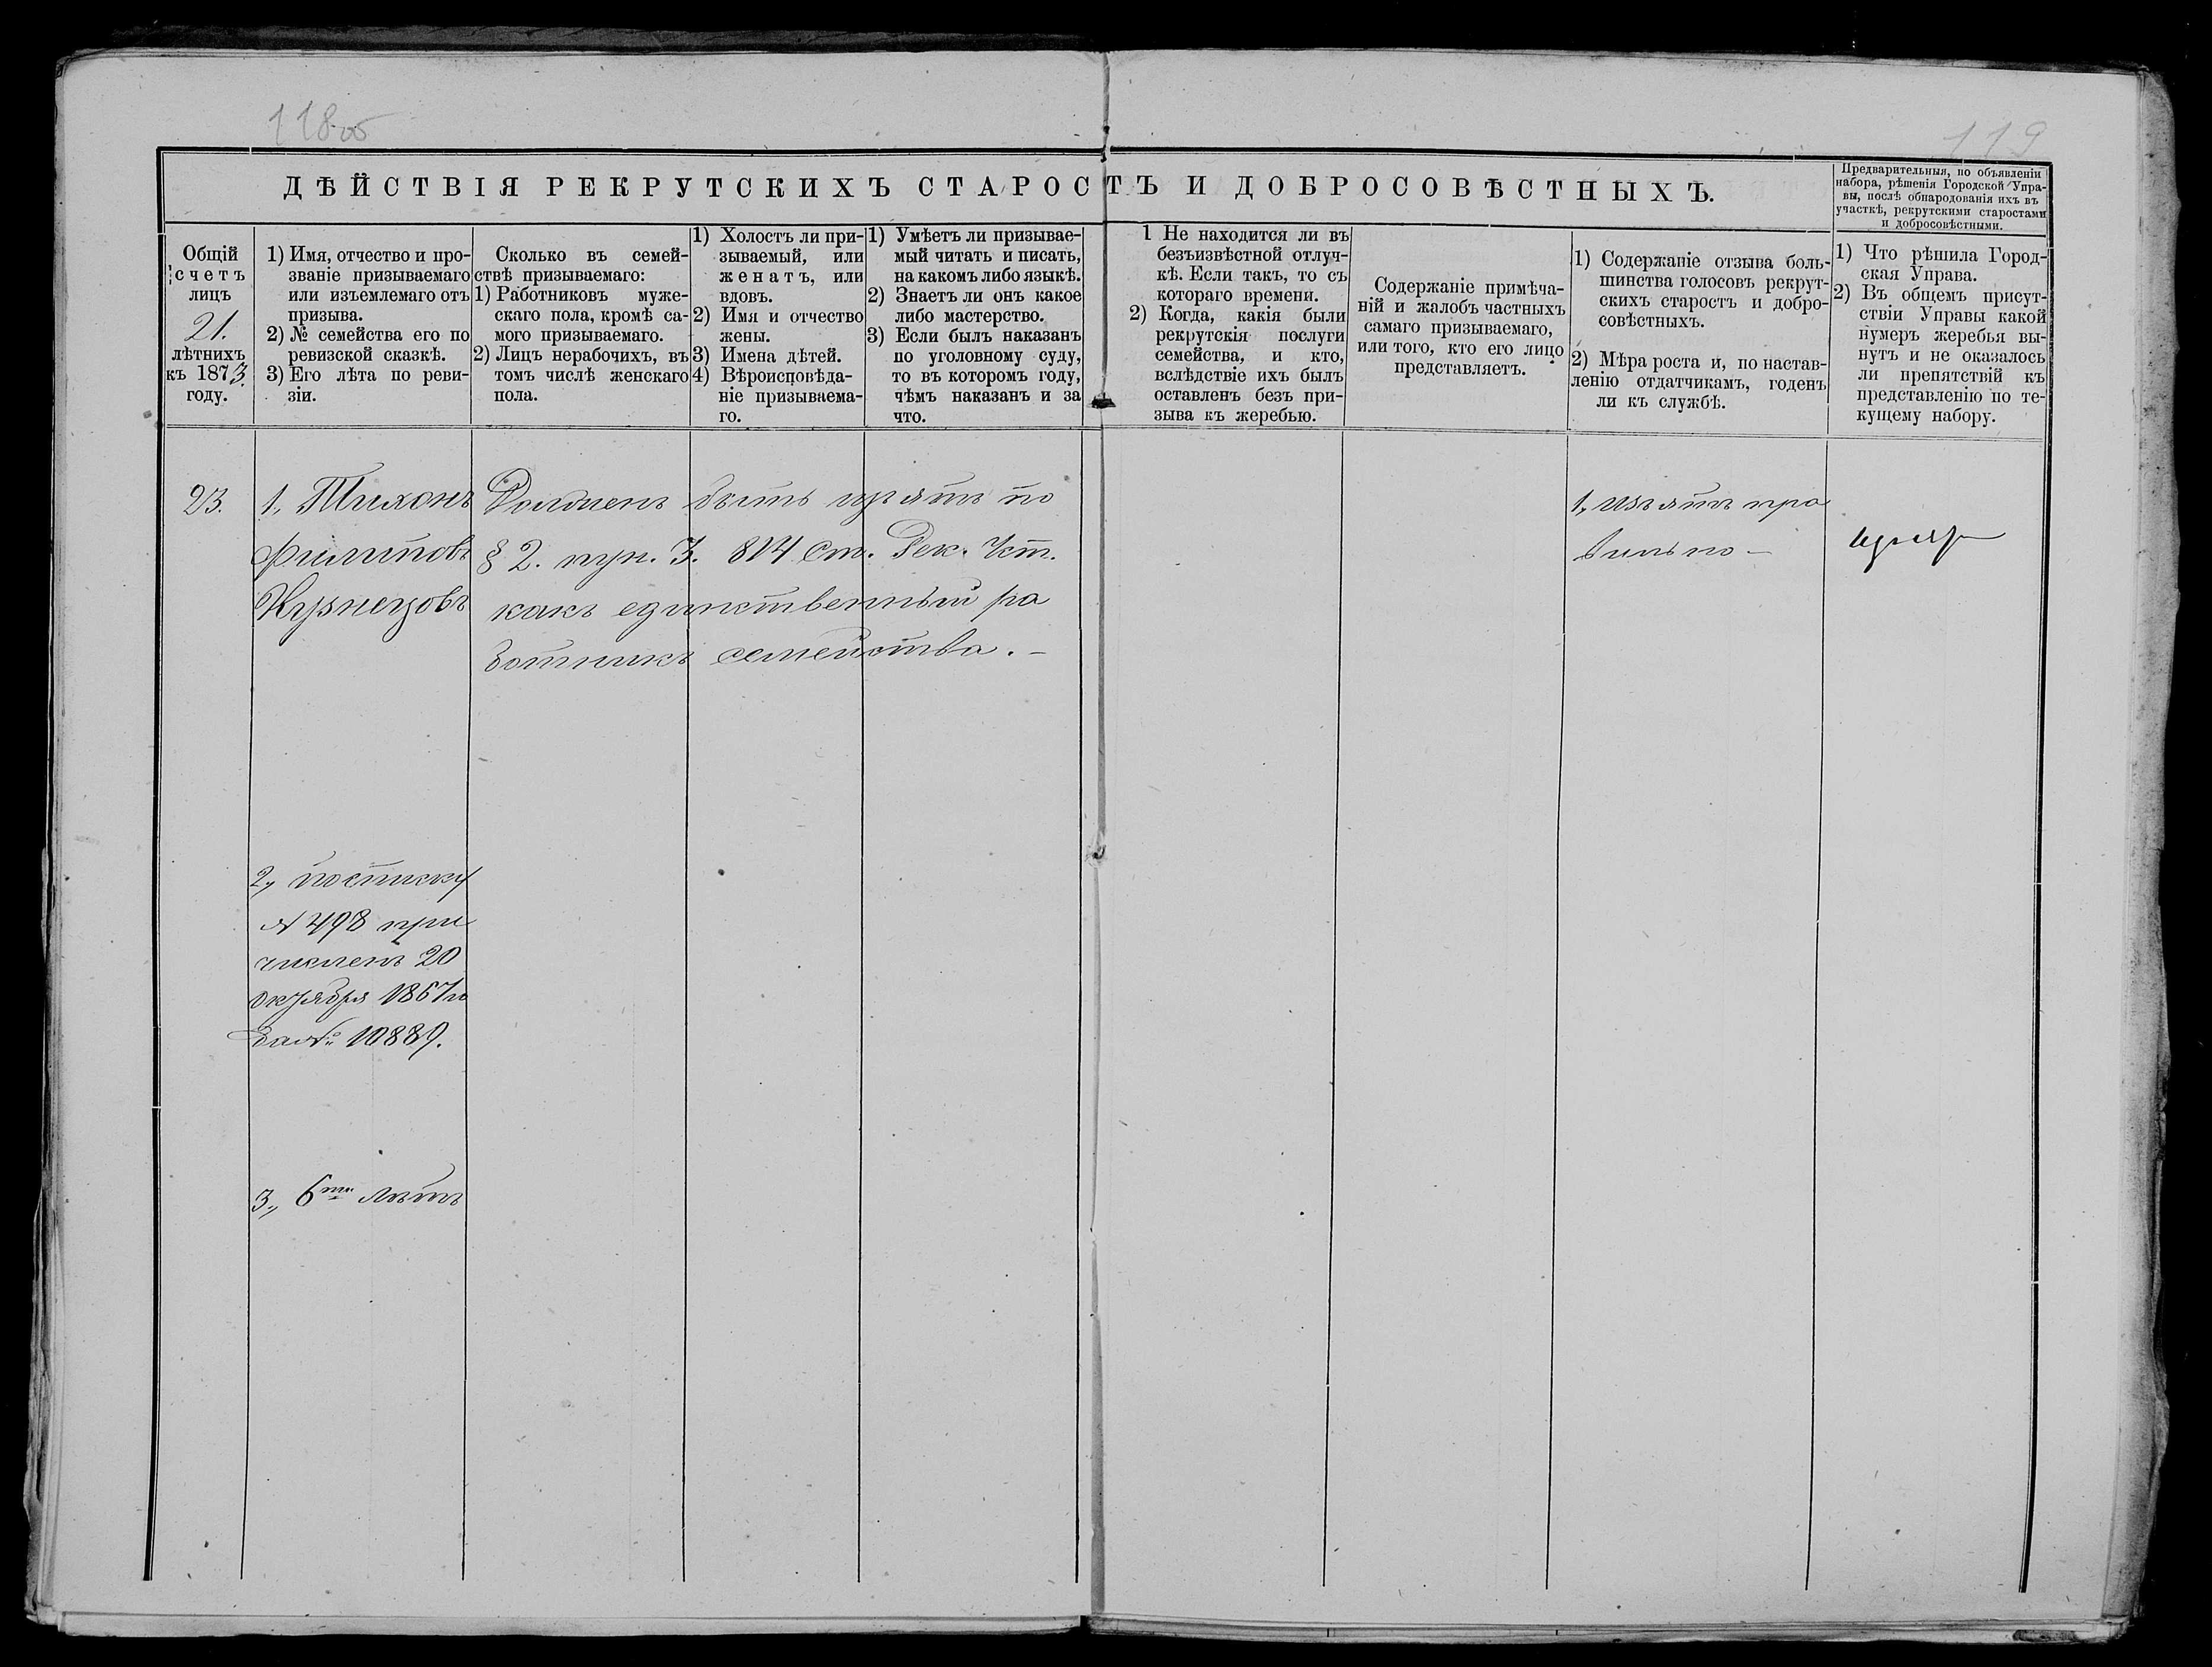 118 об
119
ДѢЙСТВІЯ РЕКРУТСКИХЪ СТАРОСТЪ И ДОБРОСОВѢСТНЫХЪ.
Предварительныя, по объявленіи
набора, рѣшенія Городской Упра-
вы, послѣ обнародованія ихъ въ
участкѣ, рекрутскими старостами
и добросовѣстными.
Общій
счетъ
лицъ
21.
лѣтнихъ
къ 1873.
году.
1) Имя, отчество и про-
званіе призываемаго
или изъемлемаго отъ
призыва.
2) № семейства его по
ревизской сказкѣ.
3) Его лѣта по реви-
зіи.
Сколько въ семей-
ствѣ призываемаго:
1) Работниковъ муже-
скаго пола, кромѣ са-
мого призываемаго.
2) Лицъ нерабочихъ, въ
томъ числѣ женскаго
пола.
1) Холостъ ли при-
зываемый, или
женатъ, или
вдовъ.
2) Имя и отчество
жены.
3) Имена дѣтей.
4) Вѣроисповѣда-
ніе призываема-
го.
1) Умѣетъ ли призывае-
мый читать и писать,
на какомъ либо языкѣ.
2) Знаетъ ли онъ какое
либо мастерство.
3) Если былъ наказанъ
по уголовному суду,
то въ которомъ году,
чѣмъ наказанъ и за
что.
1 Не находится ли въ
безъизвѣстной отлуч-
кѣ. Если такъ, то съ
котораго времени.
2) Когда, какія были
рекрутскія послуги
семейства, и кто,
вслѣдствіе ихъ былъ
оставленъ безъ при-
зыва къ жеребью.
Содержаніе примѣча-
ній и жалобъ частныхъ
самаго призываемаго,
или того, кто его лицо
представляетъ.
1) Содержаніе отзыва боль-
шинства голосовъ рекрут-
скихъ старостъ и добро-
совѣстныхъ.
2) Мѣра роста и, по настав-
ленію отдатчикамъ, годенъ
ли къ службѣ.
1) Что рѣшила Город-
ская Управа.
2) Въ общемъ присут-
ствіи Управы какой
нумеръ жеребья вы-
нутъ и не оказалось
ли препятствій къ
представленію по те-
кущему набору.
23.
1, Тихонъ
Филиповъ
Кузнецовъ
2, по списку
№ 498 при
численъ 20
Октября 1867 г
За № 10889.
3, 6ти лѣтъ
Долженъ быть изъятъ по
§ 2. пун. 3. 814 Ст. Рек. Уст.
какъ единственный ра
ботникъ семейства. –
1, изъятъ пра
вильно –